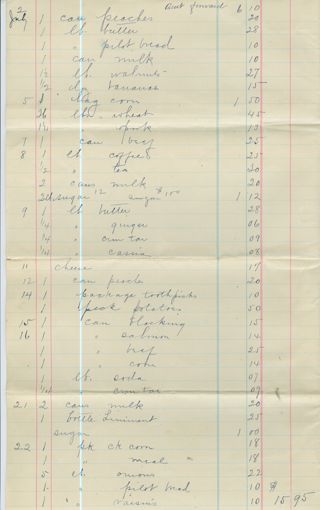 2 Bout forward 6 10
July 1 can peaches 20
1 lb butter 28
1 " pilot bread 10
1 can milk 10
1½ lb. walnuts 27
½ dz bananas 15
5 1 bag corn 1 50
26 lbs wheat 45
1½ " pork 13
7 1 can beef 25
8 1 lb coffee 25
½ " tea 20
2 cans milk 20
sugar 12 sugar $1.00 1 12
9 1 lb butter 28
¼ " ginger 06
¼ " crm tar 09
¼ " cassia 08
11 cheese 17
12 1 can peach 20
14 1 package toothpicks 10
1 peck potatoes 50
15 1 can blacking 15
16 1 " salmon 14
1 " beef 25
1 " corn 14
1 lb. soda 07
¼ " crm tar 09
21 2 cans milk 20
1 bottle Liniment 25
sugar 1 00
22 1 pk ck corn 18
1 " meal " 18
5 lb onions 22
1 " pilot bread 10 $
1 " raisins 10 15 95